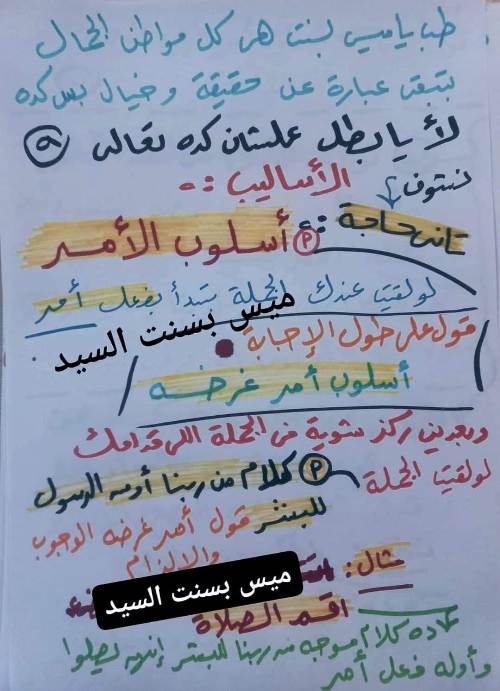 طب يا ميس بسنت هو كل مواطن الجمال
بتبقى عبارة عن حقيقة وخيال بس كده
لأ يا بطل علشان كده تعالى
نشوف الأساليب :-
تانى حاجة :- ① أسلوب الأمر
لو لقيت عندك الجملة بتبدأ بفعل أمر
ميس بسنت السيد
قول على طول الإجابة
أسلوب أمر غرضه
وبعدين ركز شوية فى الجملة اللى قدامك
لو لقيت الجملة ① كلام من ربنا أو من الرسول
للبشر قول أمر غرضه الوجوب
والإلزام
مثال :
ميس بسنت السيد
اقم الصلاة
ده كلام موجه من ربنا للبشر إنهم يصلوا
وأوله فعل أمر